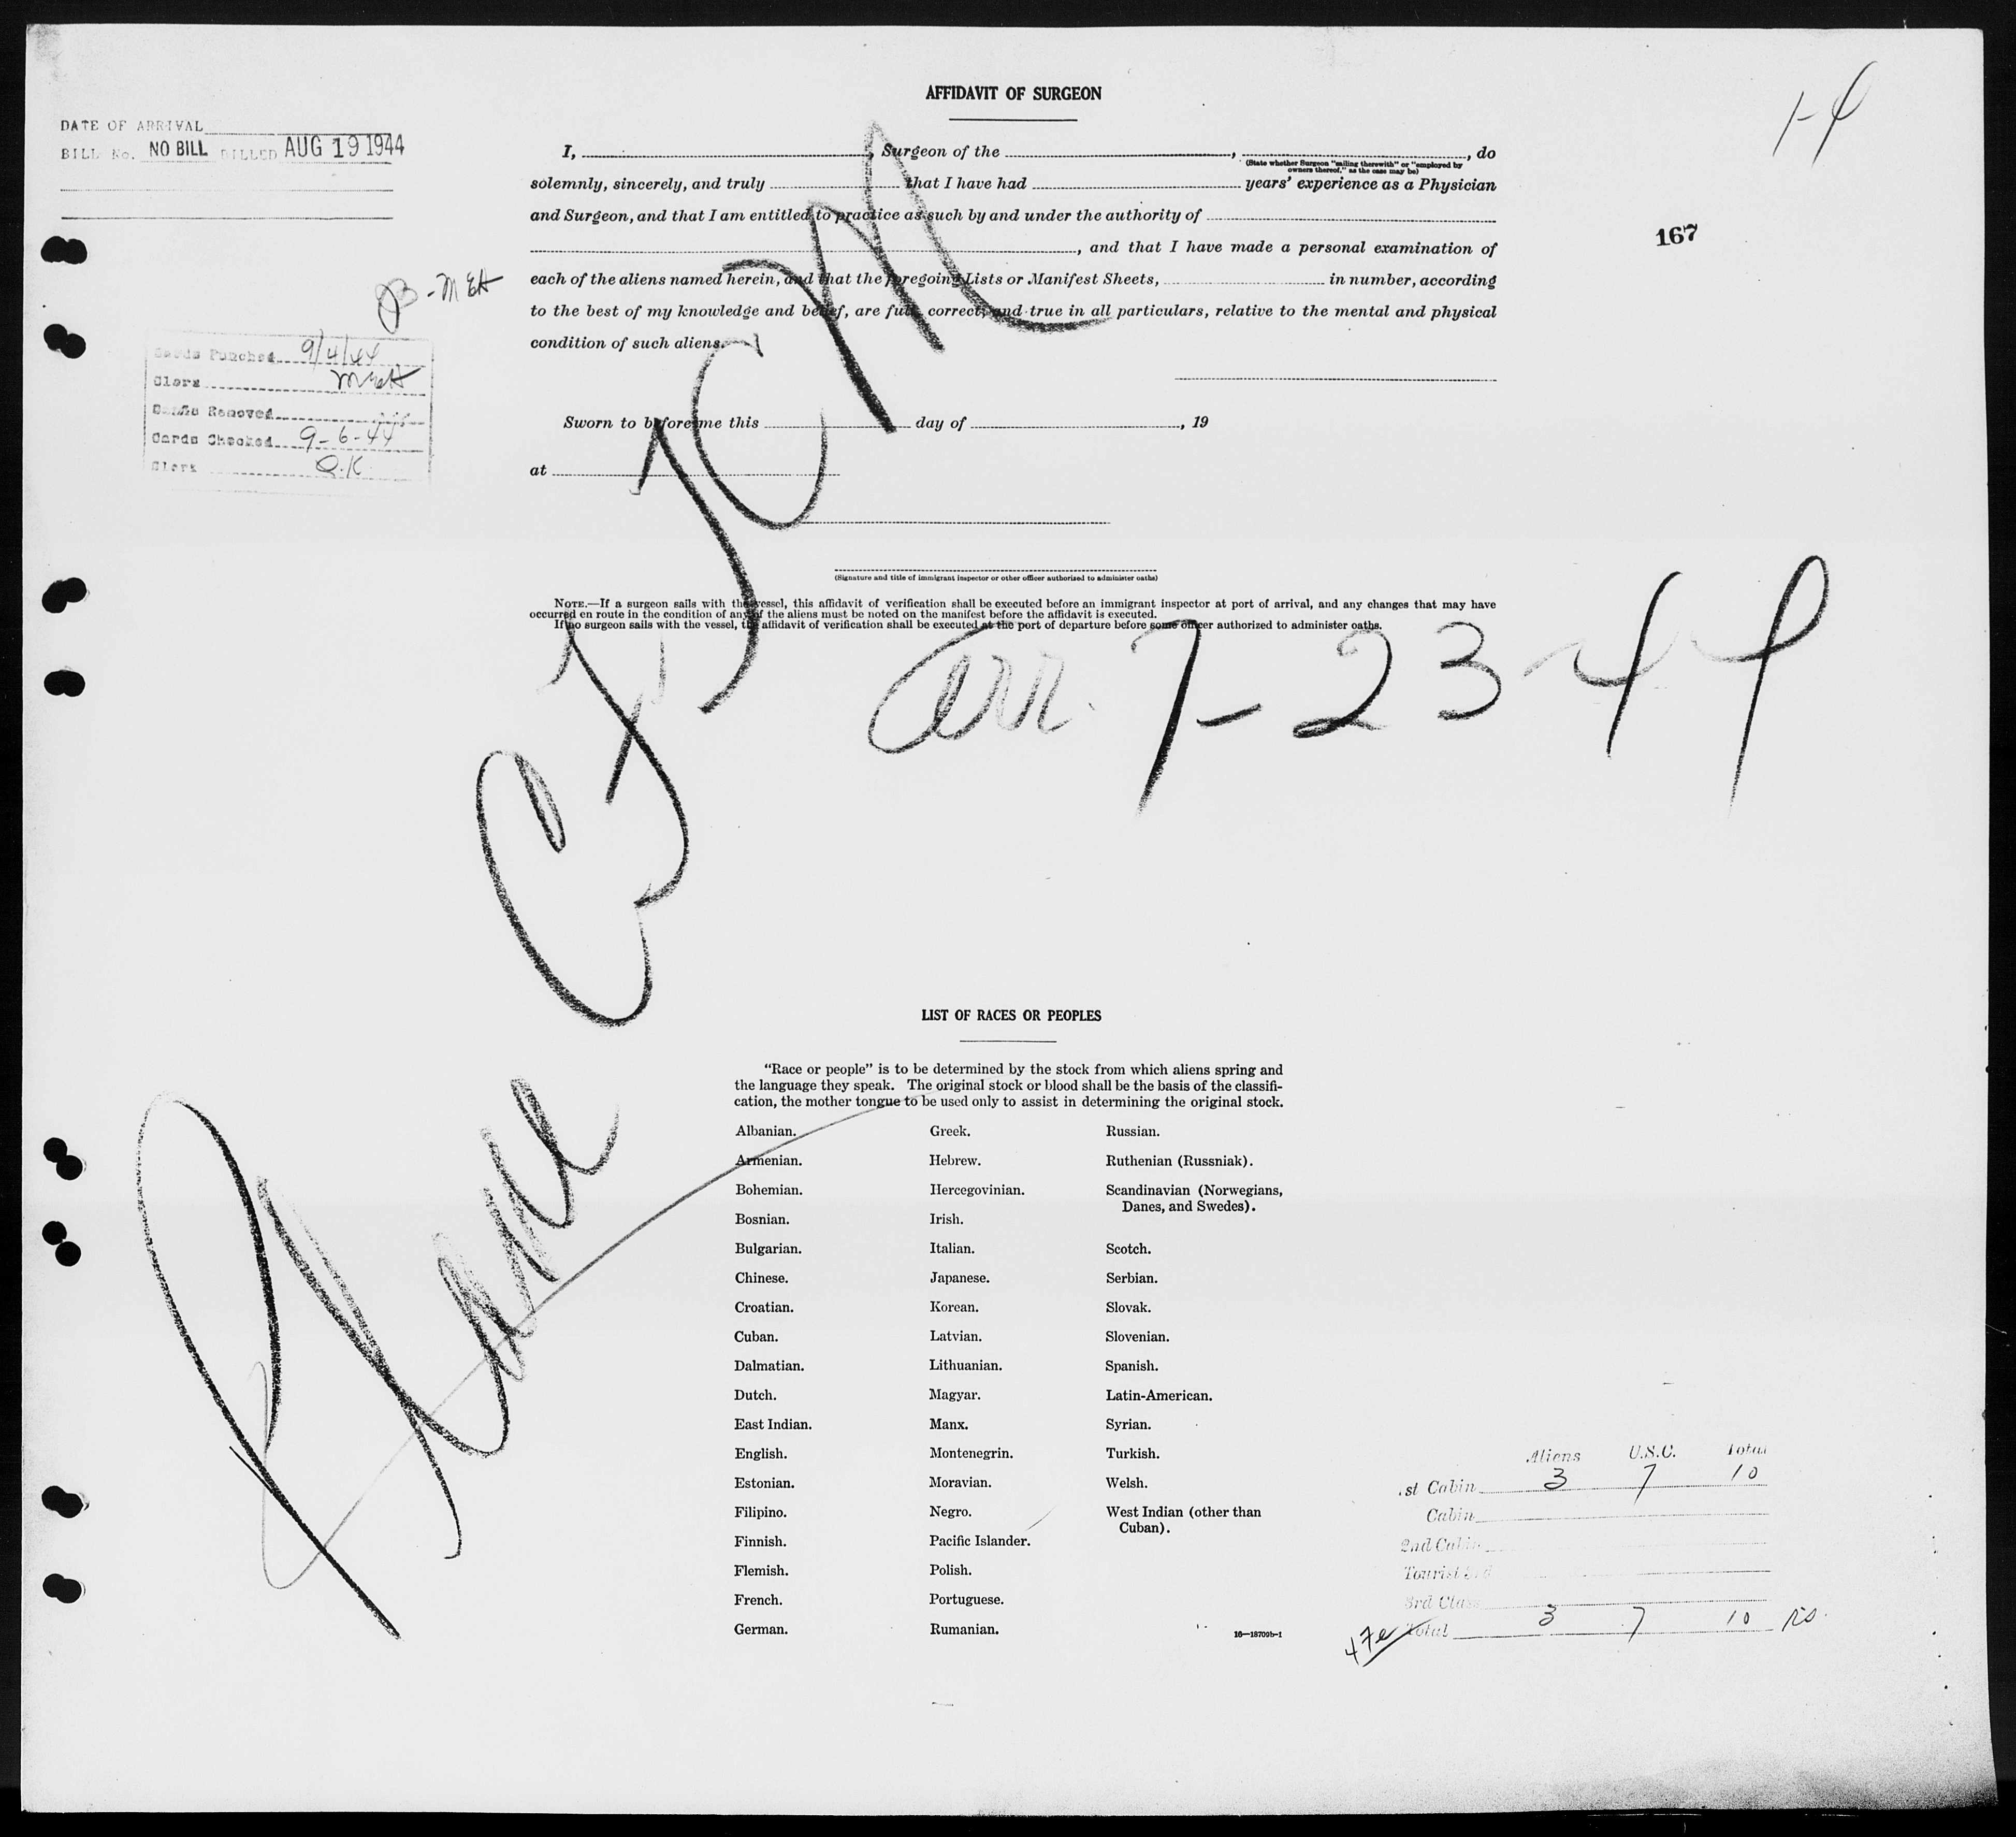 AFFIDAVIT OF SURGEON
1-4
DATE OF ARRIVAL
BILL No. NO BILL BILLED AUG 19 1944
I, , Surgeon of the , , do
(State whether Surgeon "sailing therewith" or "employed by
owners thereof," as the case may be)
solemnly, sincerely, and truly that I have had years' experience as a Physician
and Surgeon, and that I am entitled to practice as such by and under the authority of
167
, and that I have made a personal examination of
each of the aliens named herein, and that the foregoing Lists or Manifest Sheets, in number, according
to the best of my knowledge and belief, are full, correct, and true in all particulars, relative to the mental and physical
condition of such aliens.
Cards Punched 9/4/44
Clerk
Removed
Cards Checked 9-6-44
Clerk O.K.
Sworn to before me this day of , 19
at
(Signature and title of immigrant inspector or other officer authorized to administer oaths)
NOTE.—If a surgeon sails with the vessel, this affidavit of verification shall be executed before an immigrant inspector at port of arrival, and any changes that may have
occurred en route in the condition of any of the aliens must be noted on the manifest before the affidavit is executed.
If no surgeon sails with the vessel, the affidavit of verification shall be executed at the port of departure before some officer authorized to administer oaths.
arr. 7-23-44
Plane
LIST OF RACES OR PEOPLES
"Race or people" is to be determined by the stock from which aliens spring and
the language they speak. The original stock or blood shall be the basis of the classifi-
cation, the mother tongue to be used only to assist in determining the original stock.
Albanian. Greek. Russian.
Armenian. Hebrew. Ruthenian (Russniak).
Bohemian. Hercegovinian. Scandinavian (Norwegians,
Danes, and Swedes).
Bosnian. Irish.
Bulgarian. Italian. Scotch.
Chinese. Japanese. Serbian.
Croatian. Korean. Slovak.
Cuban. Latvian. Slovenian.
Dalmatian. Lithuanian. Spanish.
Dutch. Magyar. Latin-American.
East Indian. Manx. Syrian.
English. Montenegrin. Turkish.
Estonian. Moravian. Welsh.
Filipino. Negro. West Indian (other than
Cuban).
Finnish. Pacific Islander.
Flemish. Polish.
French. Portuguese.
German. Rumanian.
16—18709b-1
Aliens U.S.C. Total
1st Cabin 3 7 10
Cabin
2nd Cabin
Tourist 3rd
3rd Class
Total 3 7 10